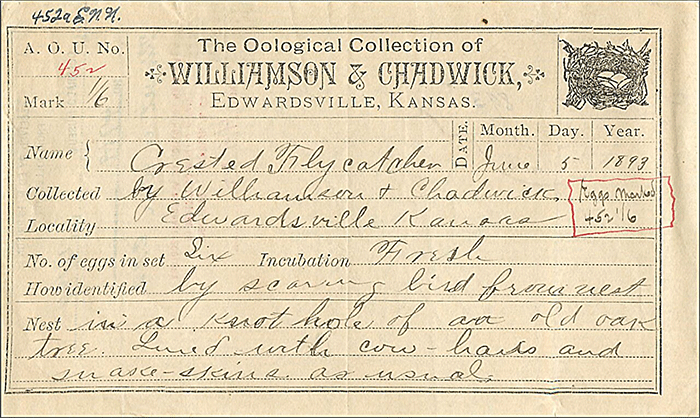 452a E.N.N.
A. O. U. No.
452
Mark 1/6
The Oological Collection of
WILLIAMSON & CHADWICK,
EDWARDSVILLE, KANSAS.
DATE. Month. Day. Year.
Name } Crested Flycatcher June 5 1893
Collected by Williamson & Chadwick
Locality Edwardsville Kansas
Eggs marked
452 1/6
No. of eggs in set Six Incubation Fresh
How identified by scaring bird from nest
Nest in a knot hole of an old oak
tree. Lined with cow-hairs and
snake-skins as usual.